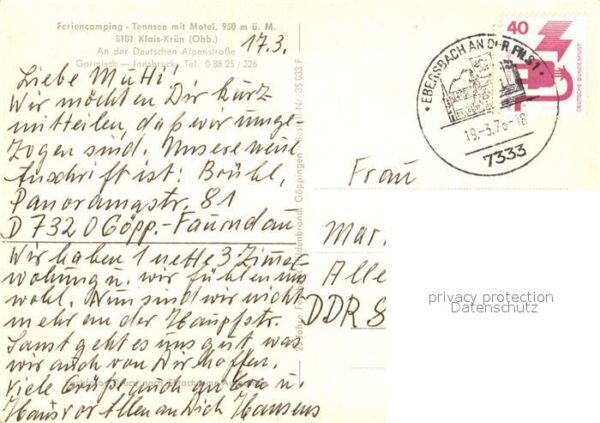 Feriencamping - Tennsee mit Motel, 950 m ü. M.
8101 Klais-Krün (Obb.)
An der Deutschen Alpenstraße
Garmisch — Innsbruck Tel. 0 88 25 / 326
17.3.
Liebe Mutti!
Wir möchten Dir kurz
mitteilen, daß wir umge-
zogen sind. Unsere neue
Anschrift ist: Brühl,
Panoramastr. 81
D 7320 Göpp.-Faurndau
Wir haben 1 nette 3 Zimmer
wohnung u. wir fühlen uns
wohl. Nun sind wir nicht
mehr an der Hauptstr.
Sonst geht es uns gut, was
wir auch von Dir hoffen.
Viele Grüße auch an u.
Hans vor Allem an Dich Hansens
35 033 F
Göppingen
40
DEUTSCHE BUNDESPOST
EBERSBACH AN DER FILS 1
19.-3.76-18
7333
Frau
Mar
Alle
DDR 8
privacy protection
Datenschutz